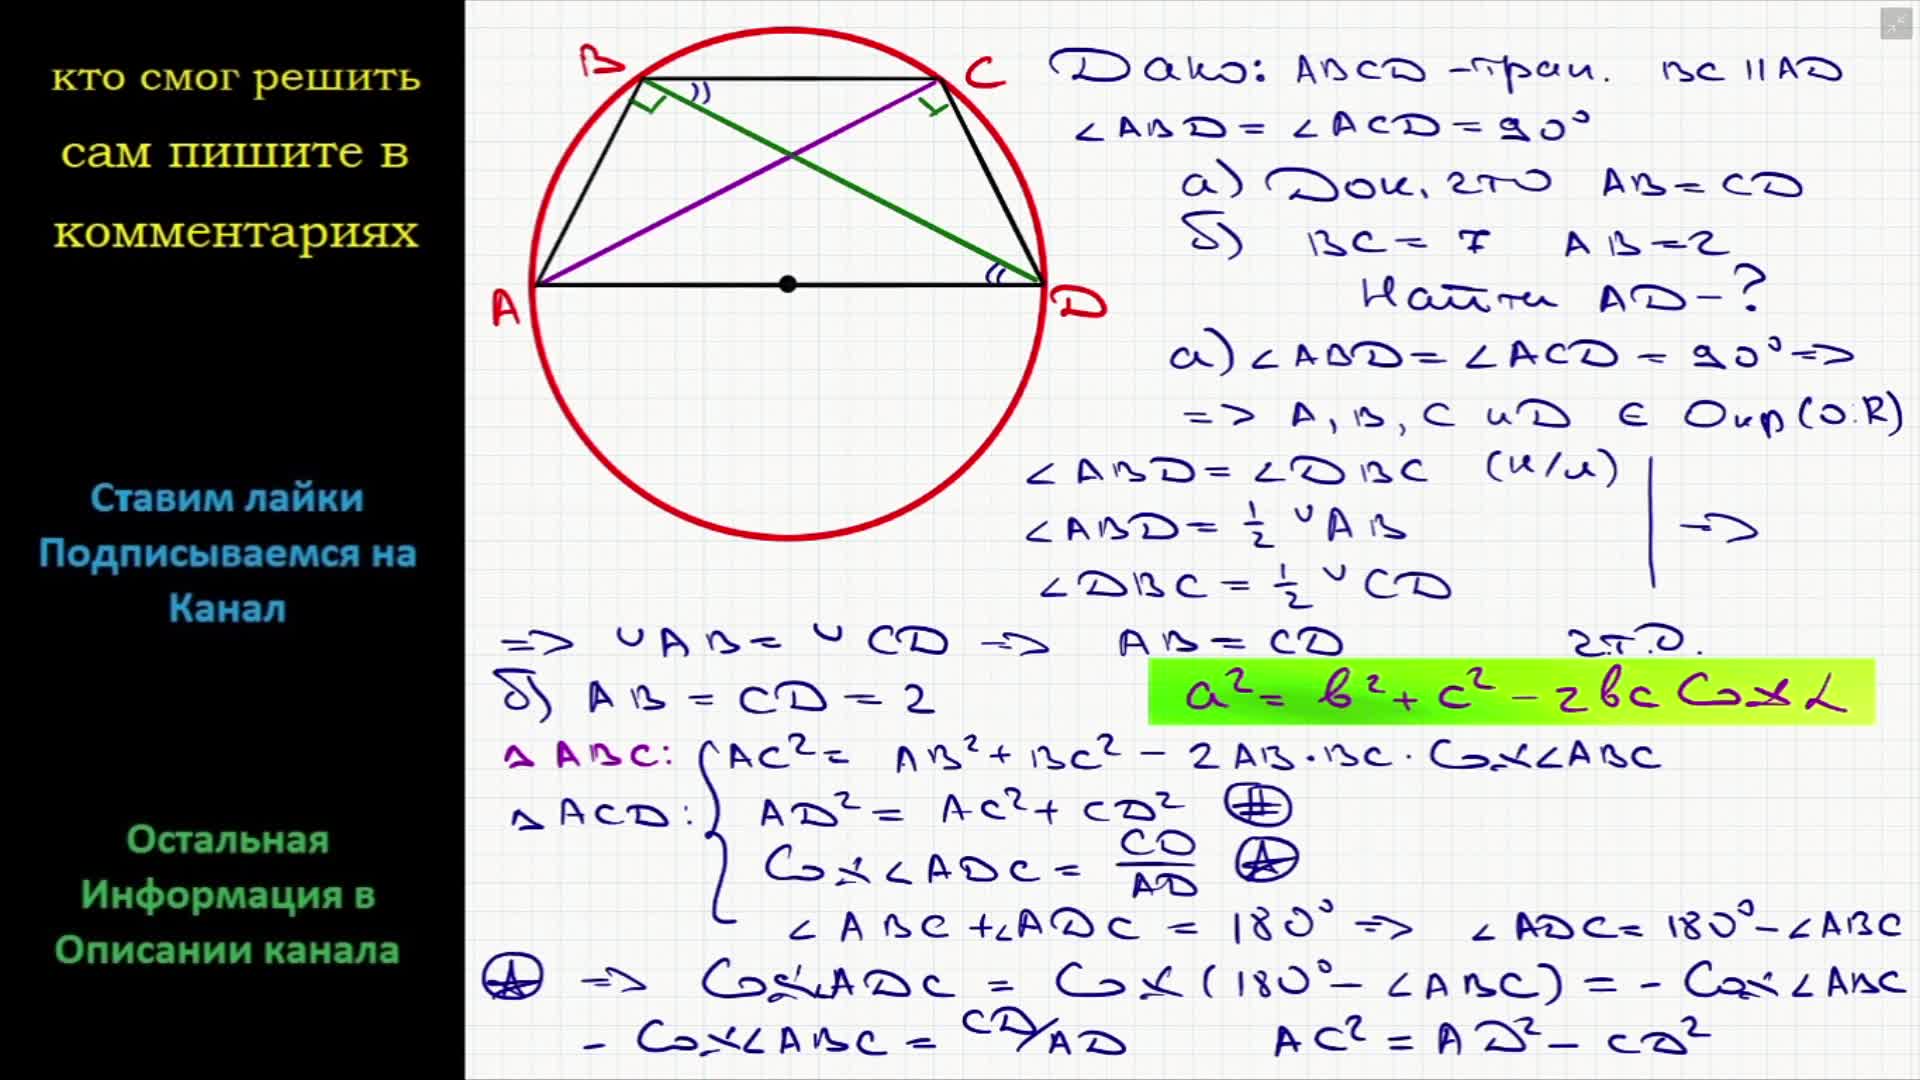 кто смог решить
сам пишите в
комментариях
Ставим лайки
Подписываемся на
Канал
Остальная
Информация в
Описании канала
B
C
A
D
Дано: ABCD - трап. BC || AD
∠ABD = ∠ACD = 90°
а) Док, что AB = CD
б) BC = 7 AB = 2
Найти AD - ?
а) ∠ABD = ∠ACD = 90° =>
=> A, B, C и D ∈ Окр(O;R)
∠ABD = ∠DBC (н/л)
∠ABD = 1/2 ◡AB
∠DBC = 1/2 ◡CD
=>
=> ◡AB = ◡CD => AB = CD ч.т.д.
б) AB = CD = 2
a² = b² + c² - 2bc Cos α
△ABC: AC² = AB² + BC² - 2AB·BC·Cos∠ABC
△ACD: AD² = AC² + CD² #
Cos∠ADC = CD/AD ☆
∠ABC + ∠ADC = 180° => ∠ADC = 180° - ∠ABC
☆ => Cos∠ADC = Cos(180° - ∠ABC) = - Cos∠ABC
- Cos∠ABC = CD/AD AC² = AD² - CD²